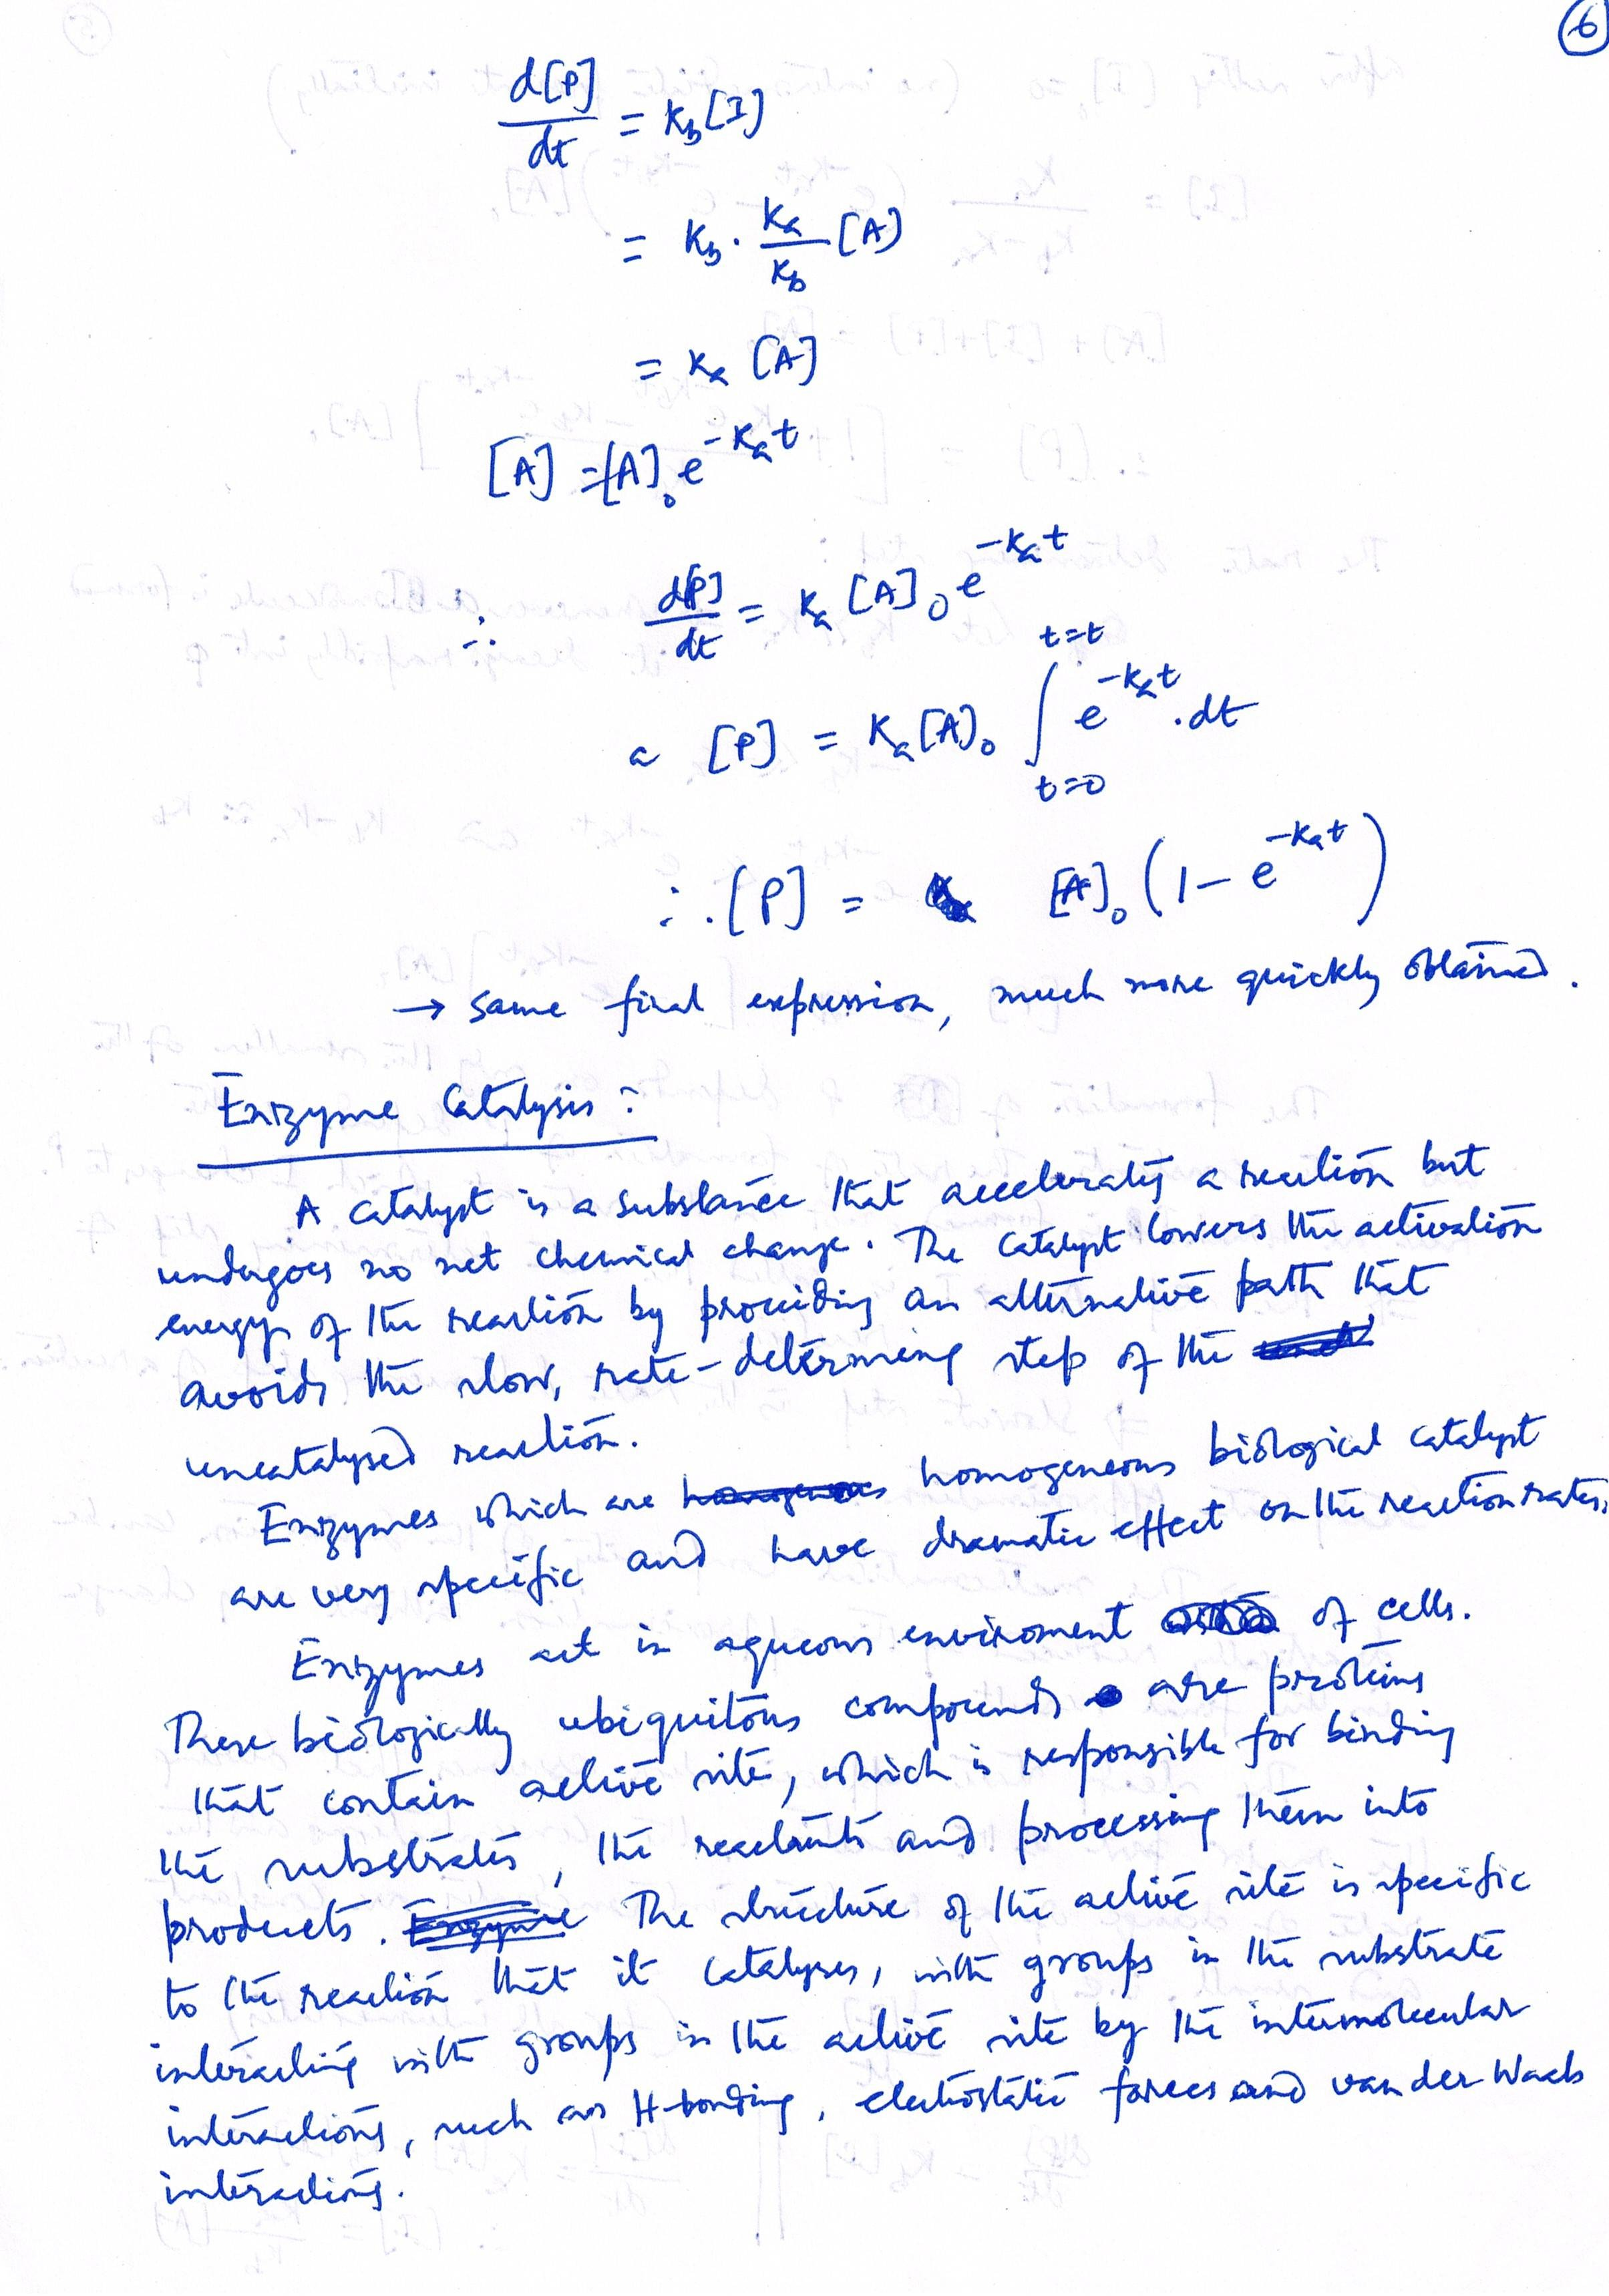 6
d[P]/dt = K_b[I]
= K_b · K_a/K_b [A]
= K_a [A]
[A] = [A]_0 e^{-K_a t}
∴ d[P]/dt = K_a [A]_0 e^{-K_a t}
[P] = K_a[A]_0 ∫_{t=0}^{t=t} e^{-K_a t} . dt
∴ [P] = [A]_0 (1 - e^{-K_a t})
→ same final expression, much more quickly obtained.
Enzyme Catalysis :
A catalyst is a substance that accelerates a reaction but
undergoes no net chemical change. The catalyst lowers the activation
energy of the reaction by providing an alternative path that
avoids the slow, rate-determining step of the
uncatalysed reaction.
Enzymes which are homogeneous biological catalyst
are very specific and have dramatic effect on the reaction rates.
Enzymes act in aqueous enviroment of cells.
These biologically ubiquitous compounds are proteins
that contain active site, which is responsible for binding
the substrates, the reactants and processing them into
products. The structure of the active site is specific
to the reaction that it catalyses, with groups in the substrate
interacting with groups in the active site by the intermolecular
interactions, such as H-bonding, electrostatic forces and van der Waals
interactions.